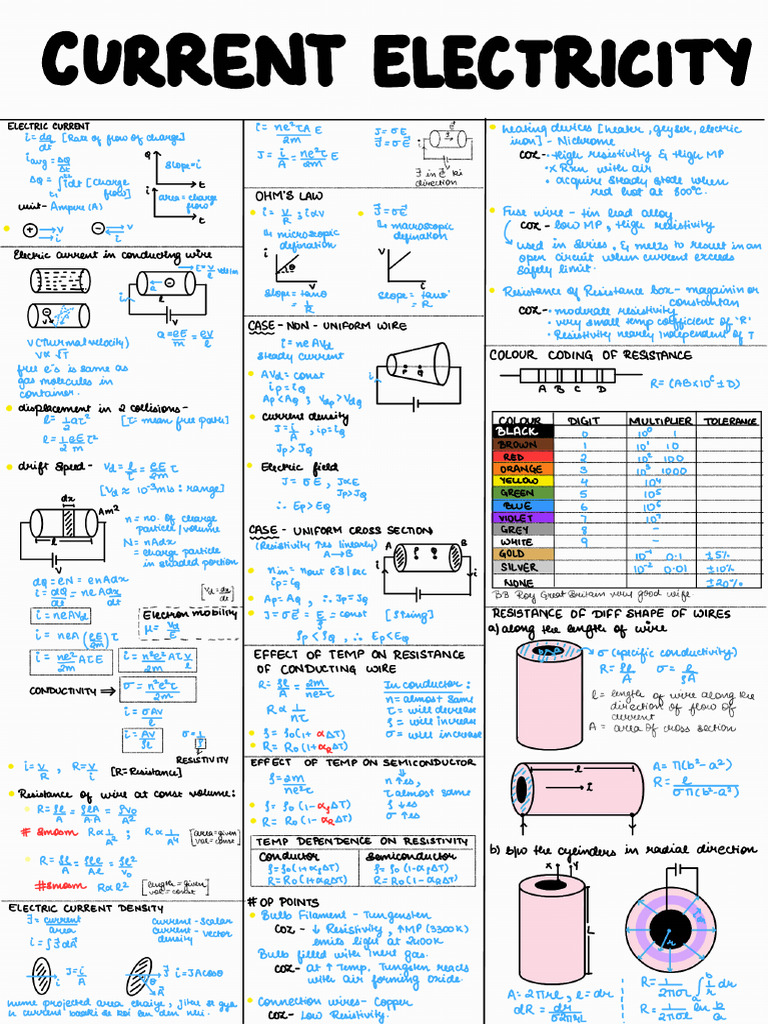 CURRENT ELECTRICITY
ELECTRIC CURRENT
i = dq/dt [Rate of flow of charge]
i avg = ΔQ/Δt
ΔQ = ∫idt [Charge flow]
unit - Ampere (A)
Q
t
slope = i
i
t
area = charge flow
+ → v → i
- ← v → i
Electric current in conducting wire
v (Thermal velocity)
v ∝ √T
free e⁻s is same as
gas molecules in
container.
l
i
V
a = eE/m = eV/l
• displacement in 2 collisions -
l = 1/2 aτ²
[τ = mean free path]
l = 1/2 eE/m τ²
• drift speed - Vd = l/τ = eE/2m τ
[Vd ≈ 10⁻³ m/s : range]
dx
Am²
l
n = no. of charge
particle/volume
N = nAdx
= charge particle
in shaded portion
dQ = eN = enAdx
i = dQ/dt = neAdx/dt
[Vd = dx/dt]
i = neAVd
Electron mobility
μ = Vd/E
i = neA (eE/2m)τ
i = ne²/2m AτE
i = n²e²Aτ V/2m l
CONDUCTIVITY ⇒ σ = n²e²τ/2m
i = σAV/l
i = AV/ρl
σ = 1/ρ
RESISTIVITY
• i = V/R , R = V/i [R = Resistance]
• Resistance of wire at const volume:
• R = ρl/A = ρlA/A·A = ρv₀/A²
# 2masm R ∝ 1/A² ; R ∝ 1/r⁴ [area = given vol = const]
• R = ρl/A = ρl·l/Al = ρl²/v₀
# 2masm R ∝ l² [length = given vol = const]
ELECTRIC CURRENT DENSITY
J = current/area
i = ∫J·dA
current - scalar
current - vector
density
J = i/A
i = JAcosθ
hume projected area chaiye, jitne se gye
i = ne²τA E/2m
J = σE
J = i/A = ne²τ E/2m
J = σE
J in E ki
direction
OHM'S LAW
• i = V/R ; i ∝ V
↳ microscopic
defination
• J = σE
↳ macroscopic
defination
i
θ
V
slope = tanθ
= 1/R
slope = tanθ
= R
CASE - NON - UNIFORM WIRE
i = neAVd
steady current
• AVd = const
ip = iQ
Ap < AQ ; Vdp > VdQ
• current density
J = i/A , ip = iQ
Jp > JQ
• Electric field
J = σE , J ∝ E
Jp > JQ
∴ Ep > EQ
P Q
CASE - UNIFORM CROSS SECTION
(Resistivity ↑es linearly)
A → B
• nin = nout eB/sec
ip = iQ
• Ap = AQ , ∴ Jp = JQ
• J = σE = E/ρ = const [String]
ρp < ρQ , ∴ Ep < EQ
A B
EFFECT OF TEMP ON RESISTANCE
OF CONDUCTING WIRE
R = ρl/A = 2m/ne²τ
R ∝ 1/nτ
In conductor :
n = almost same
τ = will decrease
ρ = will increase
σ = will increase
• ρ = ρ₀(1 + αΔT)
• R = R₀(1 + αRΔT)
EFFECT OF TEMP ON SEMICONDUCTOR
ρ = 2m/ne²τ
n ↑es,
τ almost same
ρ ↓es
σ ↑es
• ρ = ρ₀(1 - αρΔT)
• R = R₀(1 - αRΔT)
TEMP DEPENDENCE ON RESISTIVITY
Conductor
semiconductor
ρ = ρ₀(1 + αρΔT)
ρ = ρ₀(1 - αρΔT)
R = R₀(1 + αRΔT)
R = R₀(1 - αRΔT)
# OP POINTS
• Bulb Filament - Tungensten
COZ - ↓ Resistivity, ↑MP (3300K)
emits light at 2400K
Bulbs filled with Inert gas.
COZ - at ↑ Temp, Tungsten reacts
with air forming oxide.
• Connection wires - Copper
COZ - Low Resistivity.
• heating devices [heater, geyser, electric
iron] - Nichrome
COZ - • High resistivity & High MP
• x Rxn with air
• acquire steady state when
red hot at 800°C.
• Fuse wire - tin lead alloy
COZ - Low MP, High resistivity
used in series, & melts to result in an
open circuit when current exceeds
safely limit.
• Resistance of Resistance box - magainin or
constantan
COZ - • moderate resistivity
• very small temp coefficient of 'R'
• Resistivity nearly independent of T
COLOUR CODING OF RESISTANCE
A B C D
R = (AB×10ᶜ ± D)
COLOUR DIGIT MULTIPLIER TOLERANCE
BLACK 0 10⁰ 1
BROWN 1 10¹ 10
RED 2 10² 100
ORANGE 3 10³ 1000
YELLOW 4 10⁴
GREEN 5 10⁵
BLUE 6 10⁶
VIOLET 7 10⁷
GREY 8 -
WHITE 9 -
GOLD 10⁻¹ 0.1 ±5%
SILVER 10⁻² 0.01 ±10%
NONE ±20%
BB Roy Great Britain very good wife
RESISTANCE OF DIFF SHAPE OF WIRES
a) along the length of wire
σ (specific conductivity)
R = ρl/A σ = l/ρA
l = length of wire along the
direction of flow of
current
A = area of cross section
l
I
A = π(b² - a²)
R = l/σπ(b² - a²)
b) b/w the cylinders in radial direction
x y
L
r
A = 2πrl, l = dr
dR = dr/σ2πrl
R = 1/2πσl ∫ᵇₐ dr/r
R = 1/2πσl ln b/a